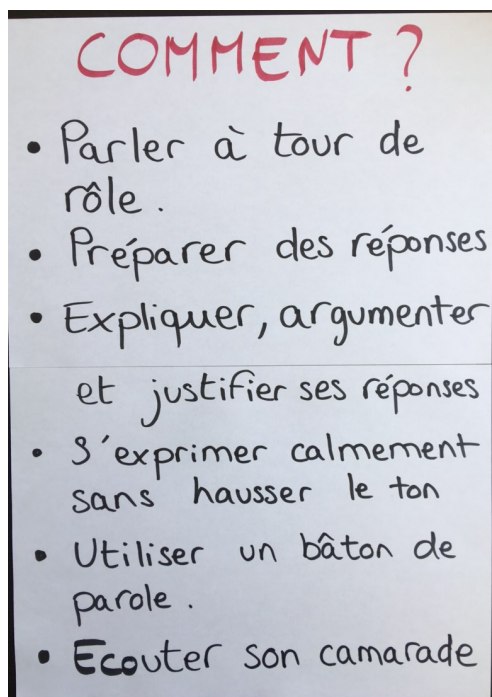 COMMENT ?
• Parler à tour de
rôle.
• Préparer des réponses
• Expliquer, argumenter
et justifier ses réponses
• S'exprimer calmement
sans hausser le ton
• Utiliser un bâton de
parole.
• Ecouter son camarade